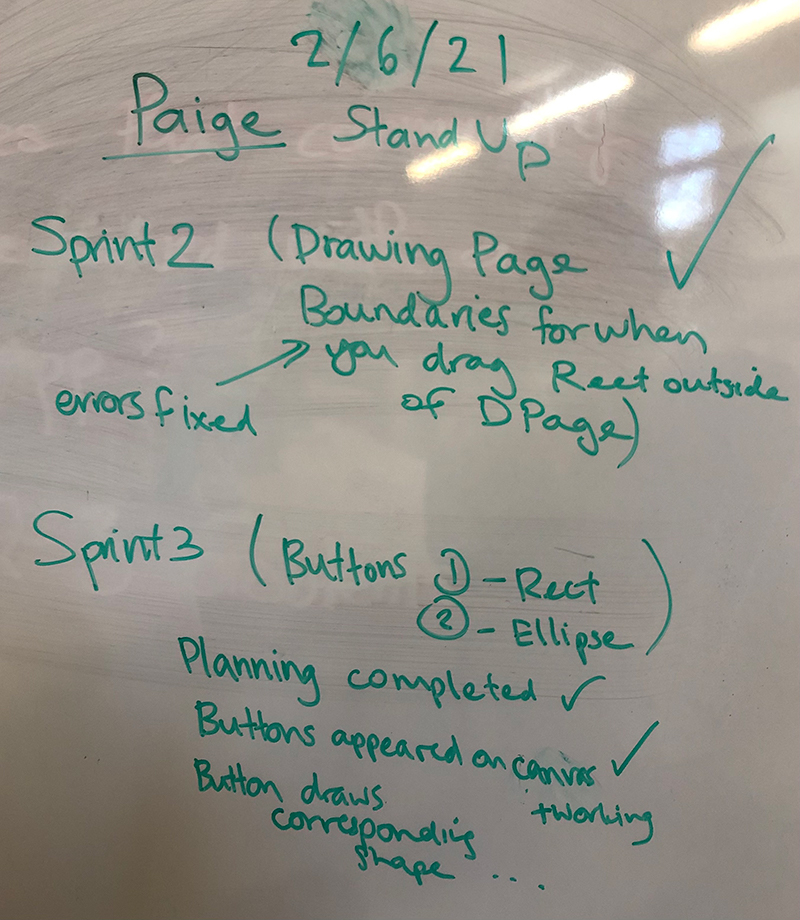 2/6/21
Paige Stand Up
Sprint 2 (Drawing Page ✓
Boundaries for when
you drag Rect outside
of DPage)
errors fixed
Sprint 3 (Buttons ① - Rect
② - Ellipse)
Planning completed ✓
Buttons appeared on canvas ✓
+working
Button draws
corresponding
shape ....